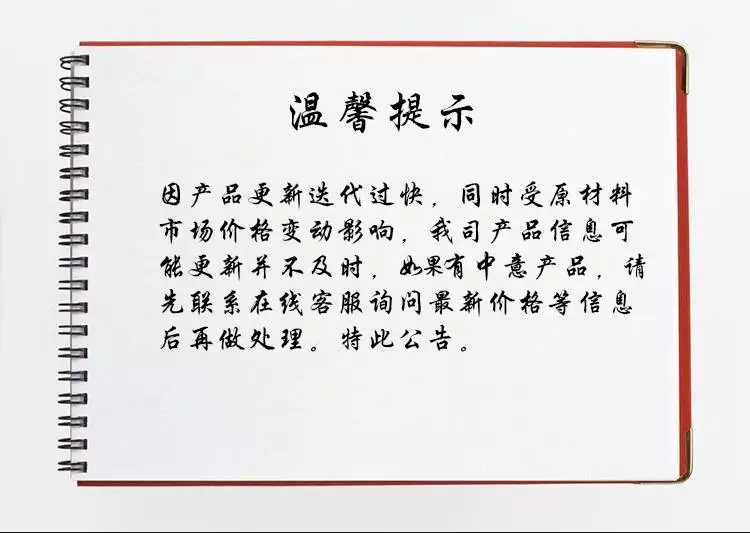 温馨提示
因产品更新迭代过快，同时受原材料
市场价格变动影响，我司产品信息可
能更新并不及时，如果有中意产品，请
先联系在线客服询问最新价格等信息
后再做处理。特此公告。